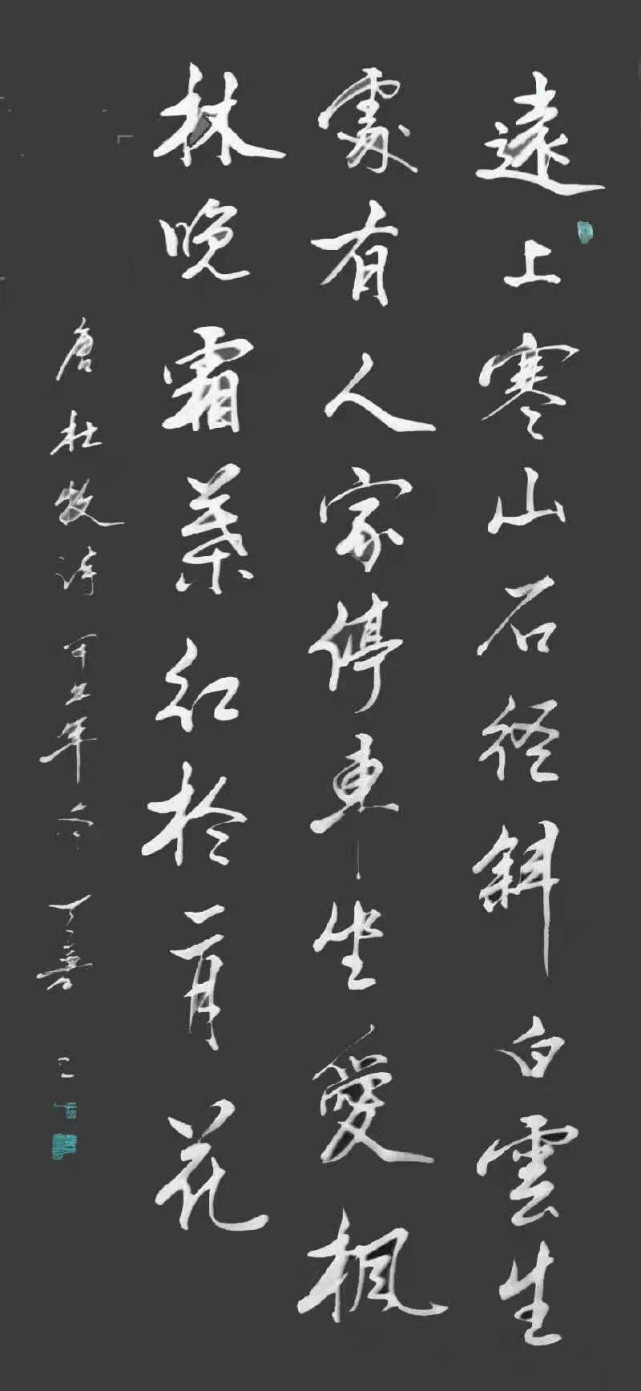 遠上寒山石徑斜白雲生
處有人家停車坐愛楓
林晚霜葉紅於二月花
唐杜牧詩 年